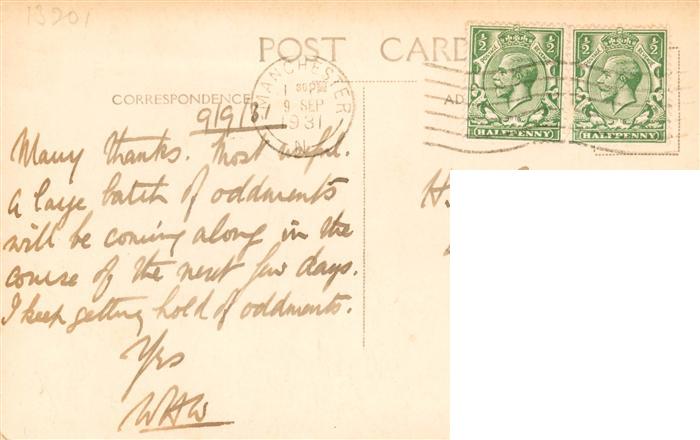 13201
POST CARD
½ ½
POSTAGE REVENUE POSTAGE REVENUE
HALFPENNY HALFPENNY
MANCHESTER
1 30PM
9 SEP
1931
CORRESPONDENCE
AD
9/9/31
Many thanks. Most useful.
A large batch of oddments
will be coming along in the
course of the next few days.
I keep getting hold of oddments.
Yrs
WHW
H.